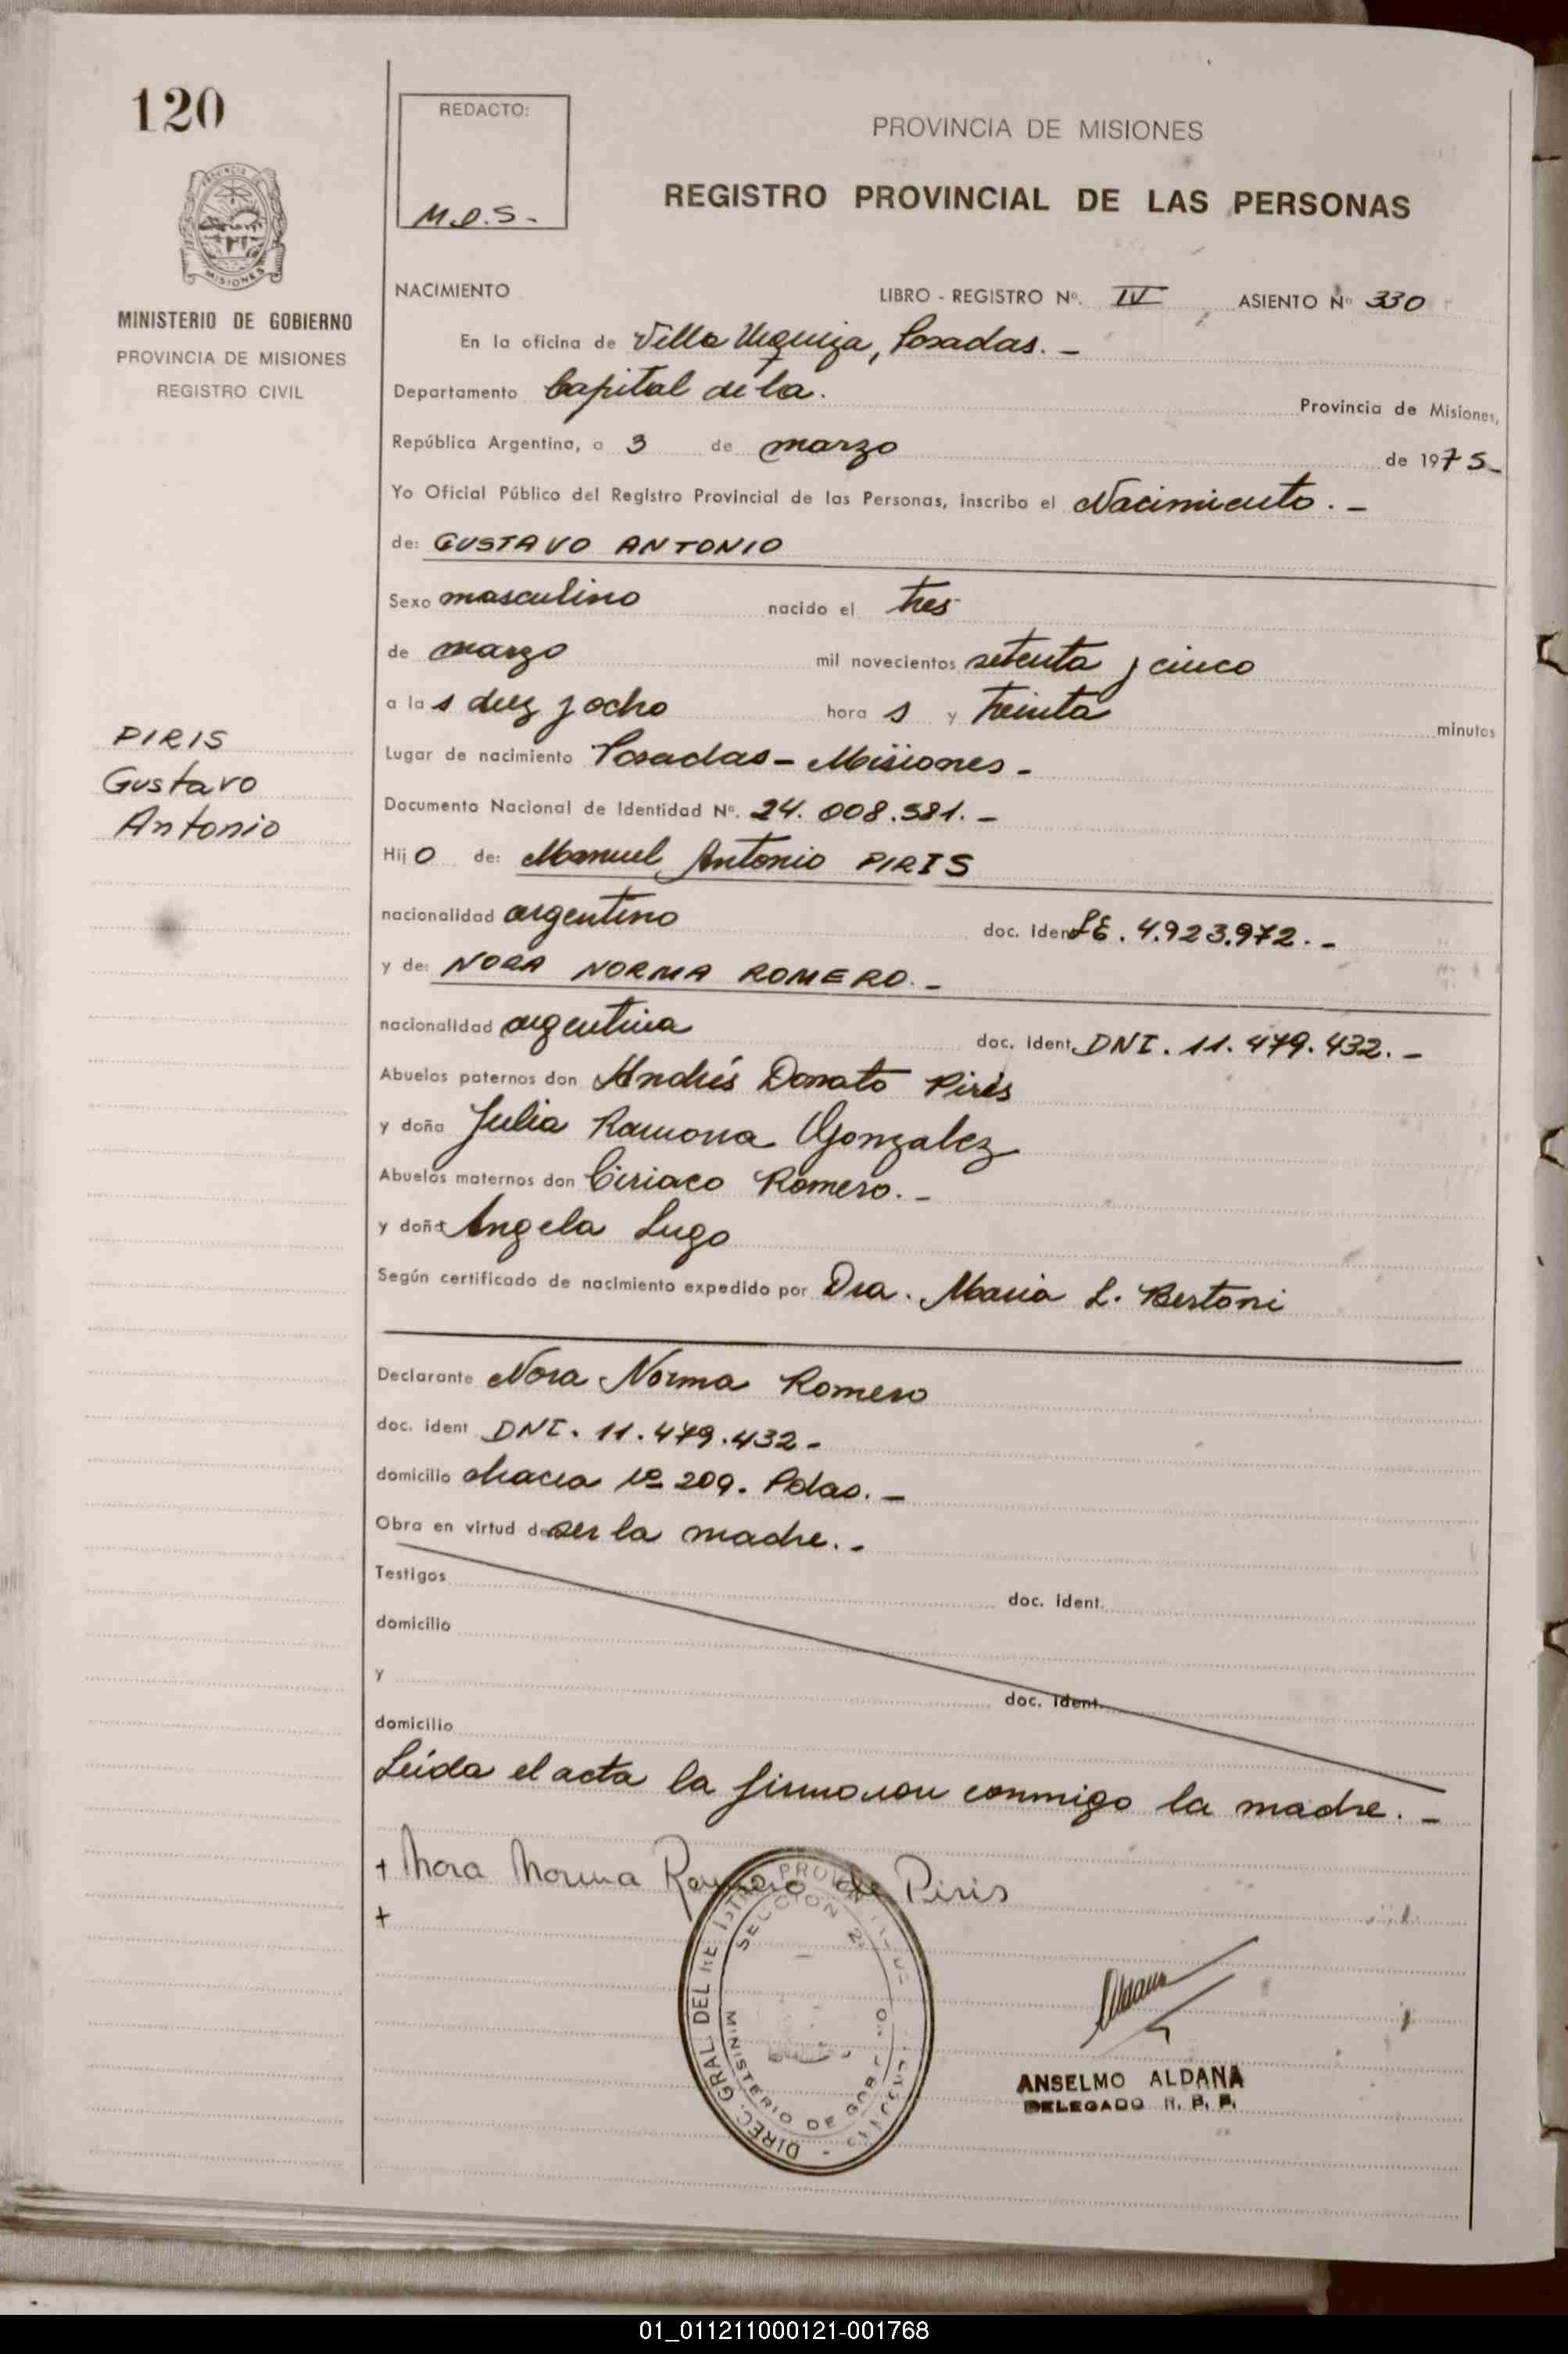 120
REDACTO:
M.D.S.-
PROVINCIA DE MISIONES
REGISTRO PROVINCIAL DE LAS PERSONAS
MISIONES
MINISTERIO DE GOBIERNO
PROVINCIA DE MISIONES
REGISTRO CIVIL
NACIMIENTO LIBRO - REGISTRO Nº. IV ASIENTO Nº 330
En la oficina de Villa Urquiza, Posadas. -
Departamento Capital de la. Provincia de Misiones,
República Argentina, a 3 de marzo de 1975-
Yo Oficial Público del Registro Provincial de las Personas, inscribo el Nacimiento. -
de: GUSTAVO ANTONIO
Sexo masculino nacido el tres
de marzo mil novecientos setenta y cinco
a las diez y ocho horas y treinta minutos
PIRIS
Gustavo
Antonio
Lugar de nacimiento Posadas - Misiones -
Documento Nacional de Identidad Nº. 24.008.581. -
Hijo de: Manuel Antonio PIRIS
nacionalidad argentino doc. ident LE. 4.923.972. -
y de: NORA NORMA ROMERO. -
nacionalidad argentina doc. ident. DNI. 11.479.432. -
Abuelos paternos don Andrés Donato Piris
y doña Julia Ramona Gonzalez
Abuelos maternos don Ciriaco Romero. -
y doña Angela Lugo
Según certificado de nacimiento expedido por Dra. Maria L. Bertoni
Declarante Nora Norma Romero
doc. ident DNI. 11.479.432 -
domicilio chacra Nº 209. Pdas. -
Obra en virtud de ser la madre. -
Testigos doc. ident.
domicilio
y doc. ident.
domicilio
Leída el acta la firmaron conmigo la madre. -
+ Nora Norma Romero de Piris
+
DIREC. GRAL. DEL REGISTRO PROV
SECCION 2ª
MINISTERIO DE GOBIERNO
ANSELMO ALDANA
DELEGADO R. P. P.
01_011211000121-001768